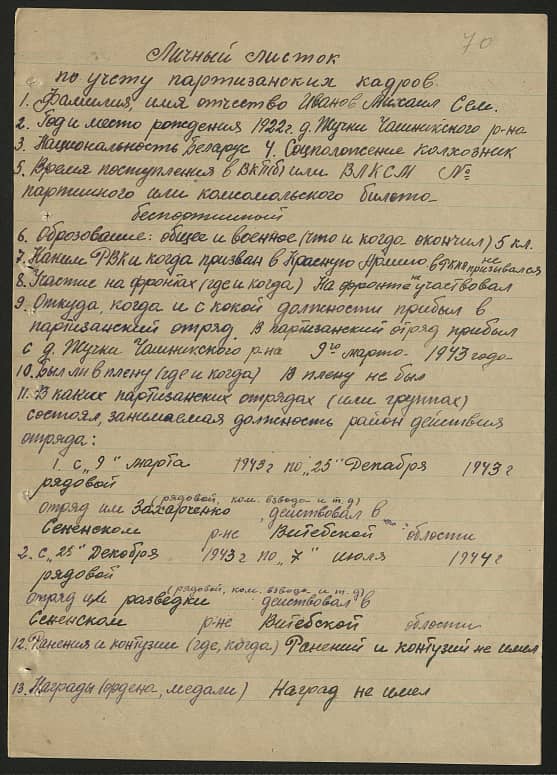 70
Личный листок
по учету партизанских кадров.
1. Фамилия, имя отчество Иванов Михаил Сем.
2. Год и место рождения 1922 г. д. Жучки Чашникского р-на
3. Национальность Беларус 4. Соцположение колхозник
5. Время поступления в ВКП(б) или ВЛКСМ №
партийного или комсомольского билета
беспартийный
6. Образование: общее и военное (что и когда окончил) 5 кл.
7. Каким РВК и когда призван в Красную Армию в РККА не призывался
8. Участие на фронтах (где и когда) На фронте не участвовал
9. Откуда, когда и с какой должности прибыл в
партизанский отряд. В партизанский отряд прибыл
с д. Жучки Чашникского р-на 9го марта 1943 года
10. Был ли в плену (где и когда) В плену не был
11. В каких партизанских отрядах (или группах)
состоял, занимаемая должность район действия
отряда:
1. с „9" марта 1943 г по „25" Декабря 1943 г
рядовой
(рядовой, ком. взвода и т.д)
отряд им Захарченко действовал в
Сененском р-не Витебской области
2. с „25" Декабря 1943 г по „7" июля 1944 г
рядовой
(рядовой, ком. взвода и т.д)
отряд им разведки действовал в
Сененском р-не Витебской области
12. Ранения и контузии (где, когда) Ранений и контузий не имел
13. Награды (ордена, медали) Наград не имел